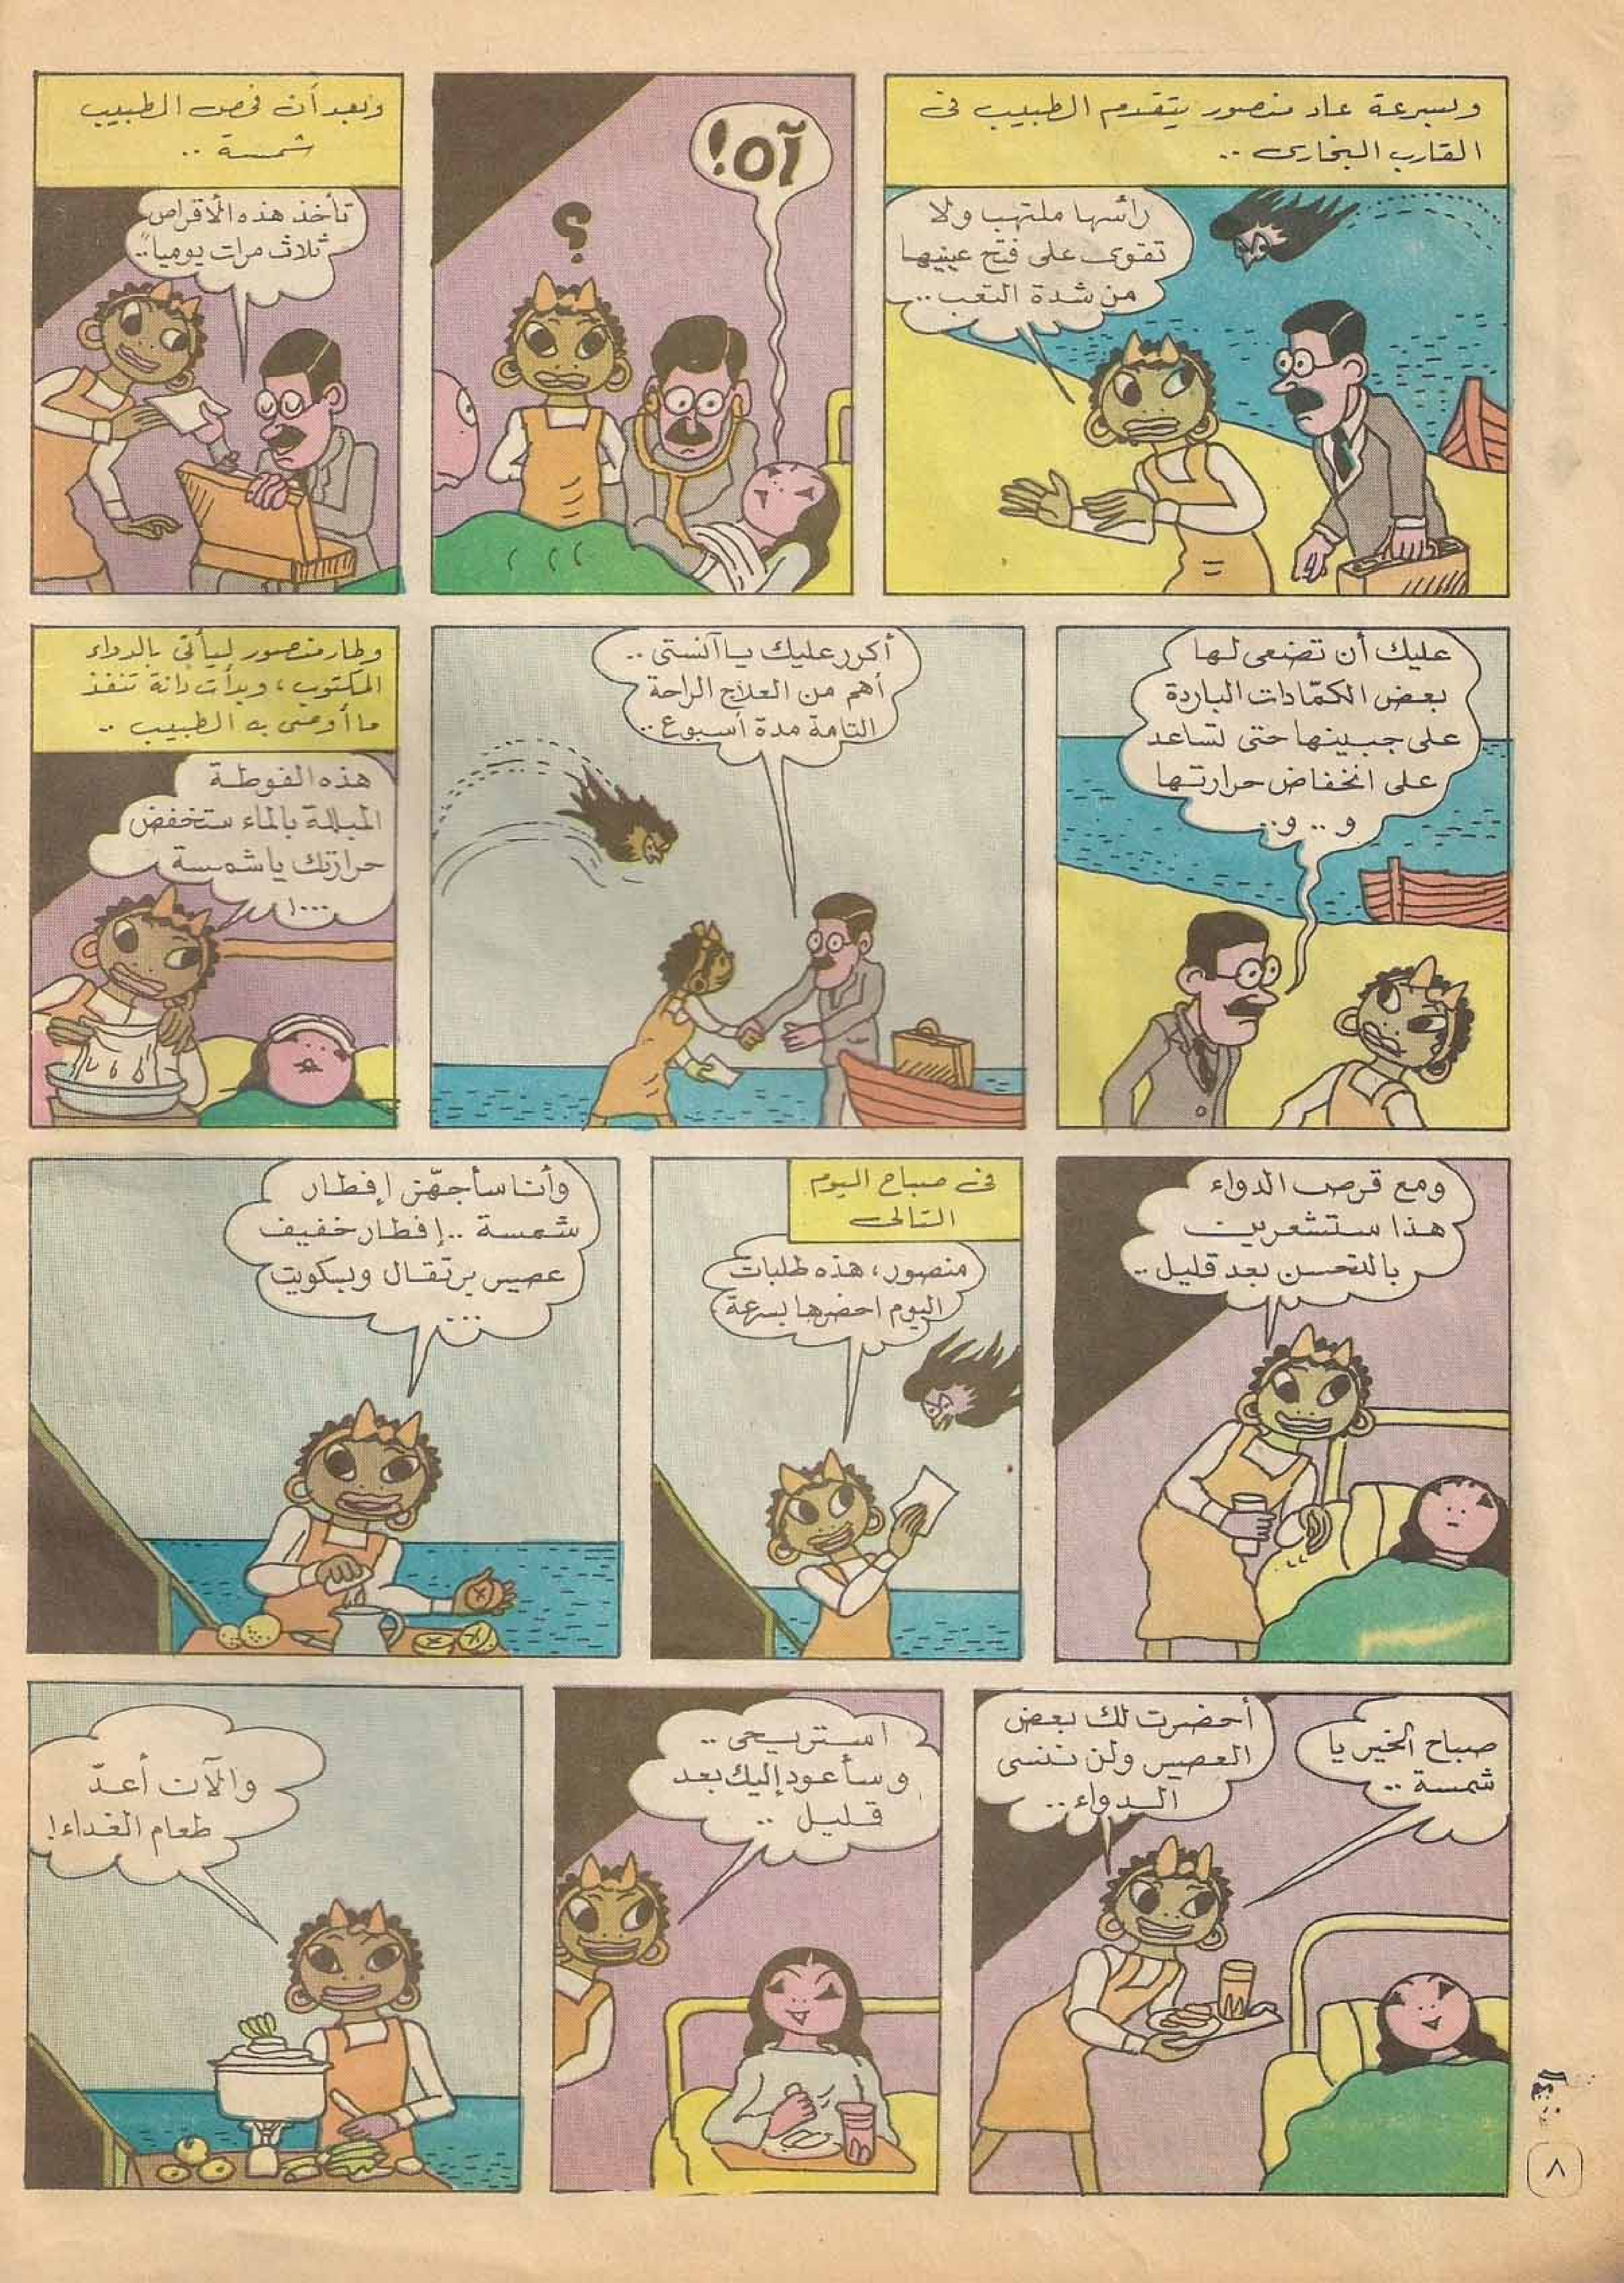 وبسرعة عاد منصور يتقدم الطبيب فى
القارب البخارى ..
رأسها ملتهب ولا
تقوى على فتح عينيها
من شدة التعب ..
آه!
؟
وبعد أن فحص الطبيب
شمسة ..
تأخذ هذه الأقراص
ثلاث مرات يومياً ..
عليك أن تضعى لها
بعض الكمّادات الباردة
على جبينها حتى تساعد
على انخفاض حرارتها
و .. و ..
أكرر عليك يا آنستى ..
أهم من العلاج الراحة
التامة مدة أسبوع ..
وطار منصور ليأتى بالدواء
المكتوب، وبدأت دانة تنفذ
ما أوصى به الطبيب ..
هذه الفوطة
المبللة بالماء ستخفض
حرارتك يا شمسة
...!
ومع قرص الدواء
هذا ستشعرين
بالتحسن بعد قليل ..
فى صباح اليوم
التالى
منصور، هذه طلبات
اليوم احضرها بسرعة
وأنا سأجهّز إفطار
شمسة .. إفطار خفيف
عصير برتقال وبسكويت
...
صباح الخير يا
شمسة ..
أحضرت لك بعض
العصير ولن ننسى
الدواء ..
استريحى ..
وسأعود إليك بعد
قليل ..
والآن أعدّ
طعام الغداء!
٨